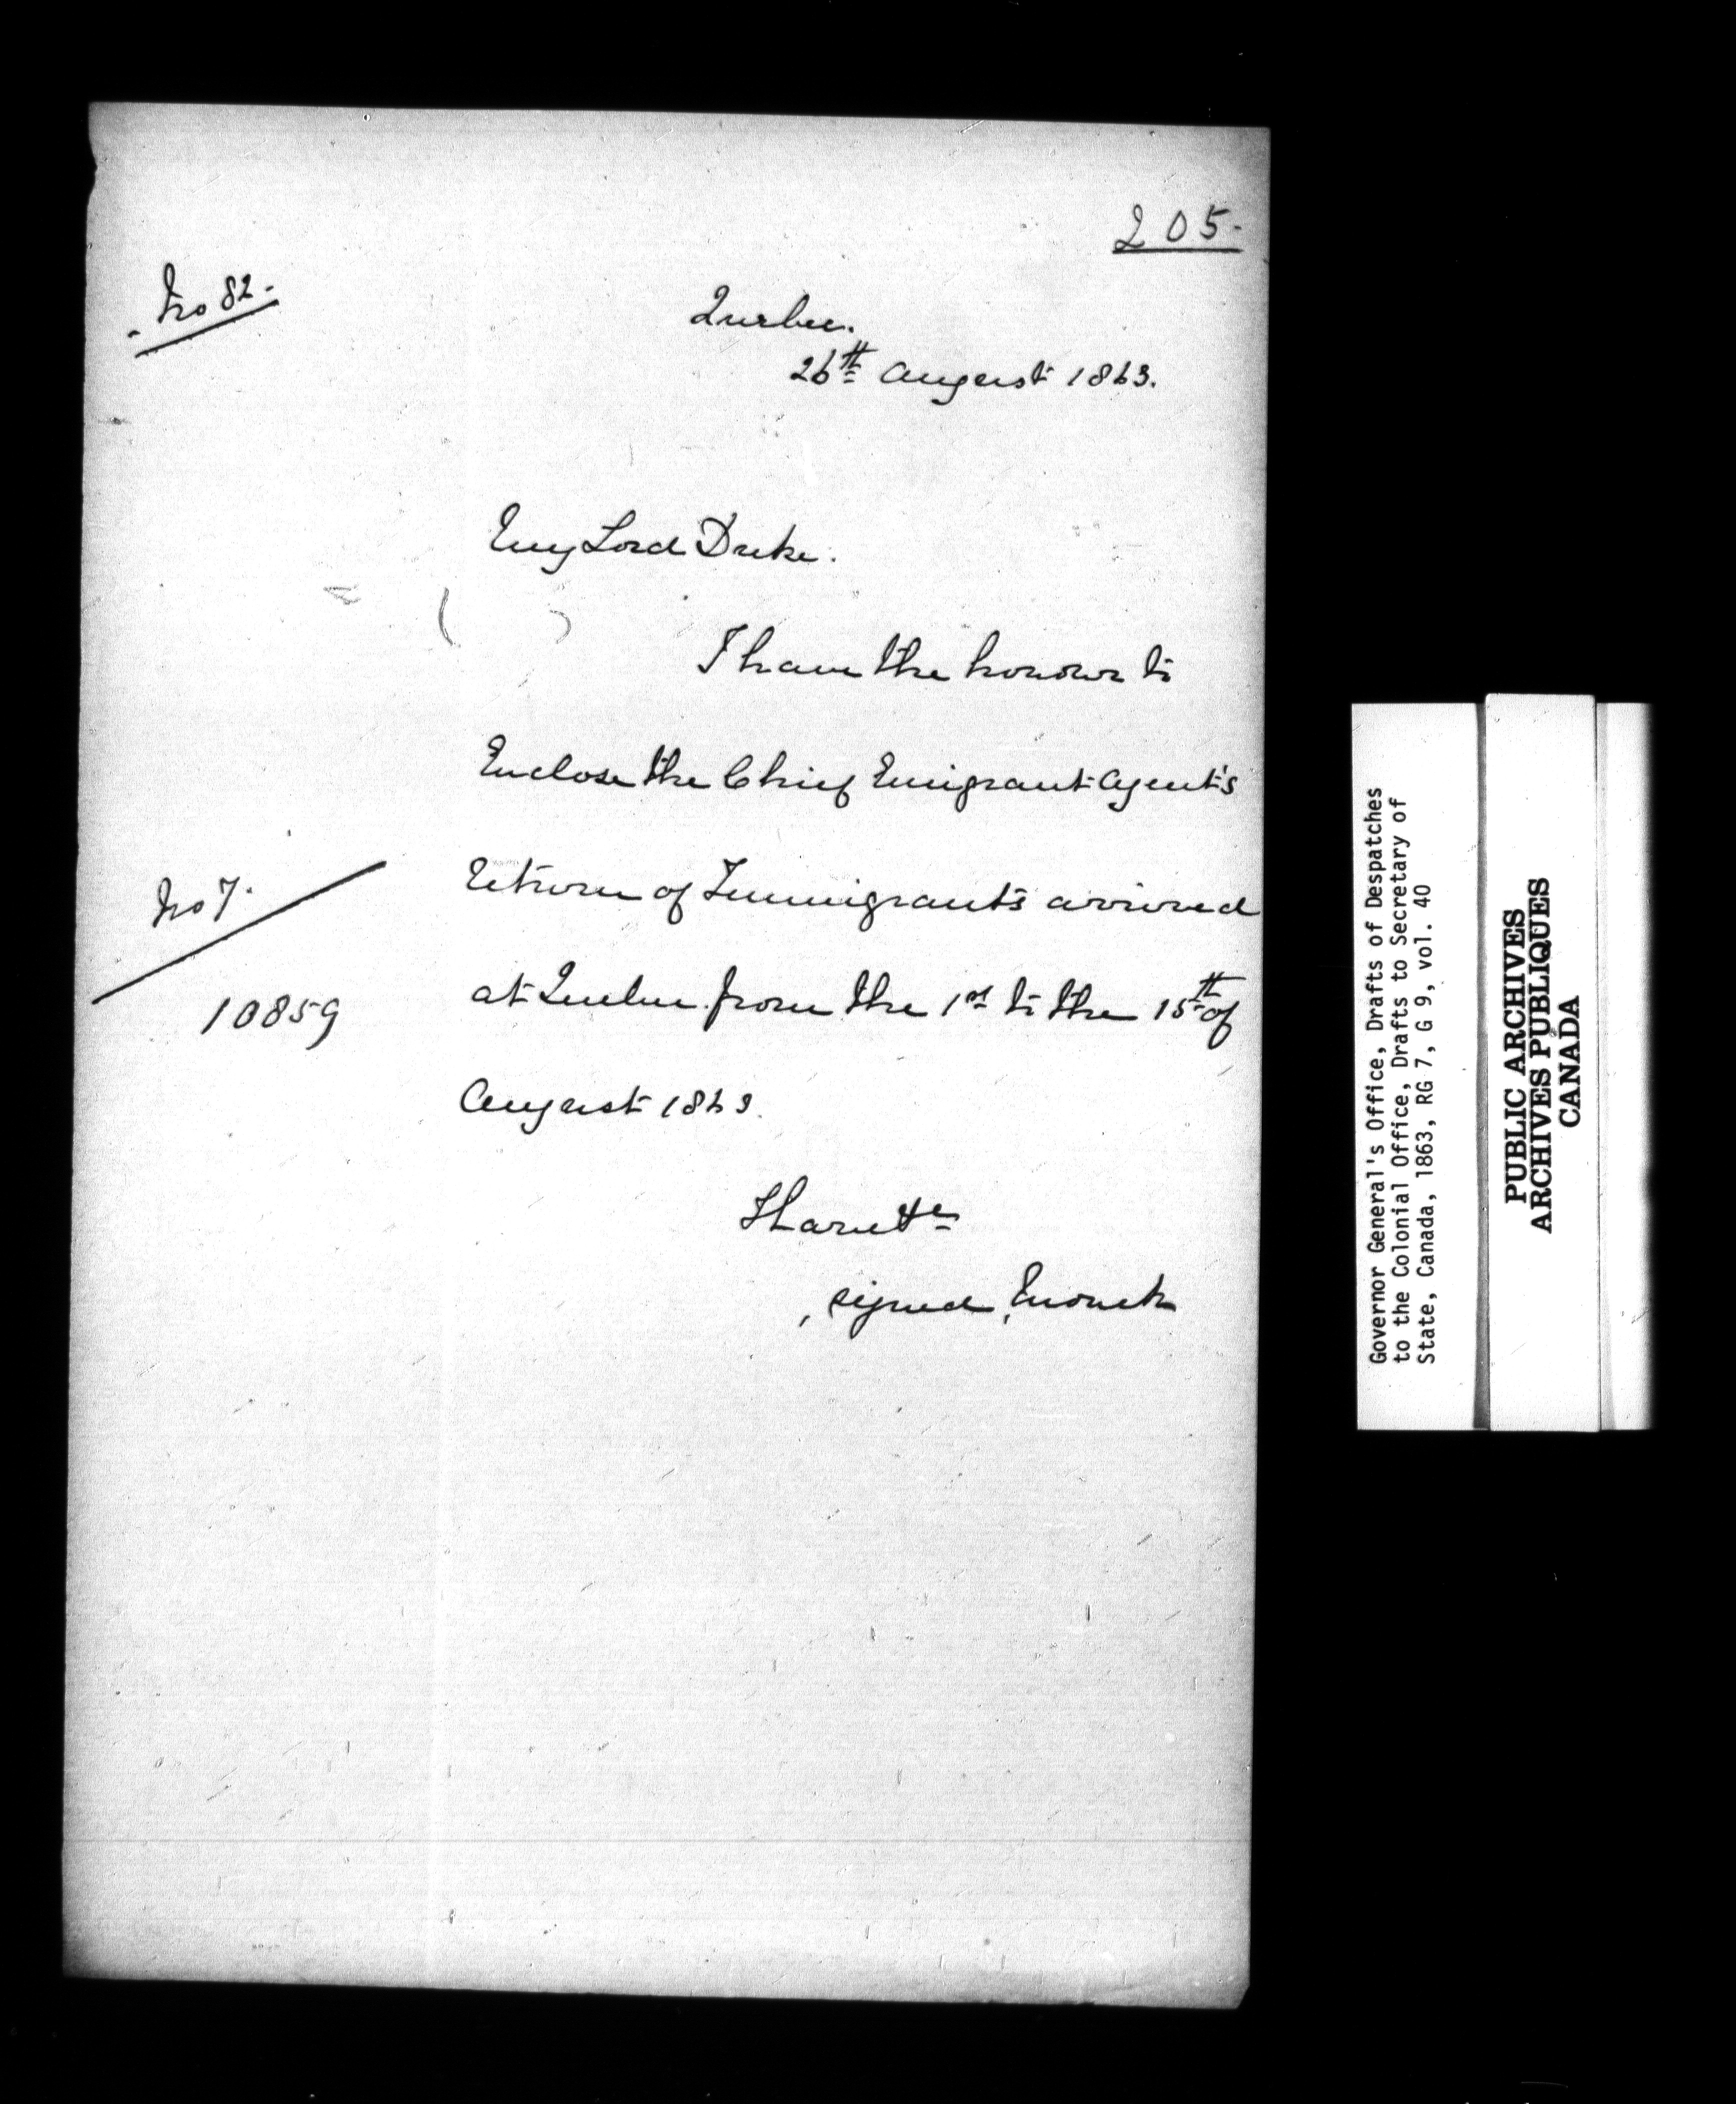 205.
No 82.
Quebec.
26th August 1863.
My Lord Duke.
I have the honour to
Enclose the Chief Emigrant Agent's
Return of Immigrants arrived
No 7.
at Quebec from the 1st to the 15th of
10859
August 1863.
I have &c
signed, Monck
Governor General's Office, Drafts of Despatches
to the Colonial Office, Drafts to Secretary of
State, Canada, 1863, RG 7, G 9, vol. 40
PUBLIC ARCHIVES
ARCHIVES PUBLIQUES
CANADA